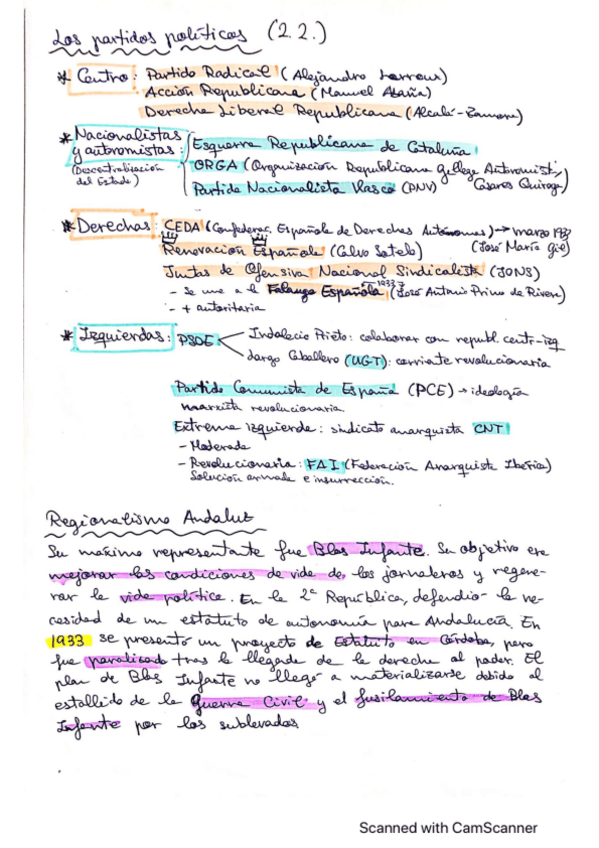 Los partidos políticos (2.2.)
* Centro: Partido Radical (Alejandro Lerroux)
Acción Republicana (Manuel Azaña)
Derecha Liberal Republicana (Alcalá-Zamora)
* Nacionalistas y autonomistas: Esquerra Republicana de Cataluña
(Descentralización del Estado)
ORGA (Organización Republicana Gallega Autonomist, Casares Quiroga)
Partido Nacionalista Vasco (PNV)
* Derechas: CEDA (Confederac. Española de Derechas Autónomas) → marzo 1933
(José María Gil)
Renovación Española (Calvo Sotelo)
Juntas de Ofensiva Nacional Sindicalista (JONS)
- Se une a la Falange Española (José Antonio Primo de Rivera)
1933
- + autoritaria
* Izquierdas: PSOE
Indalecio Prieto: colaborar con republ. centr-izq
Largo Caballero (UGT): corriente revolucionaria
Partido Comunista de España (PCE) → ideología
marxista revolucionaria
Extrema izquierda: sindicato anarquista CNT
- Moderada
- Revolucionaria: FAI (Federación Anarquista Ibérica)
Solución armada e insurrección.
Regionalismo Andaluz
Su máximo representante fue Blas Infante. Su objetivo era
mejorar las condiciones de vida de los jornaleros y regene-
rar la vida política. En la 2ª República, defendió la ne-
cesidad de un estatuto de autonomía para Andalucía. En
1933 se presentó un proyecto de Estatuto en Córdoba, pero
fue paralizado tras la llegada de la derecha al poder. El
plan de Blas Infante no llegó a materializarse debido al
estallido de la Guerra Civil y el fusilamiento de Blas
Infante por los sublevados
Scanned with CamScanner